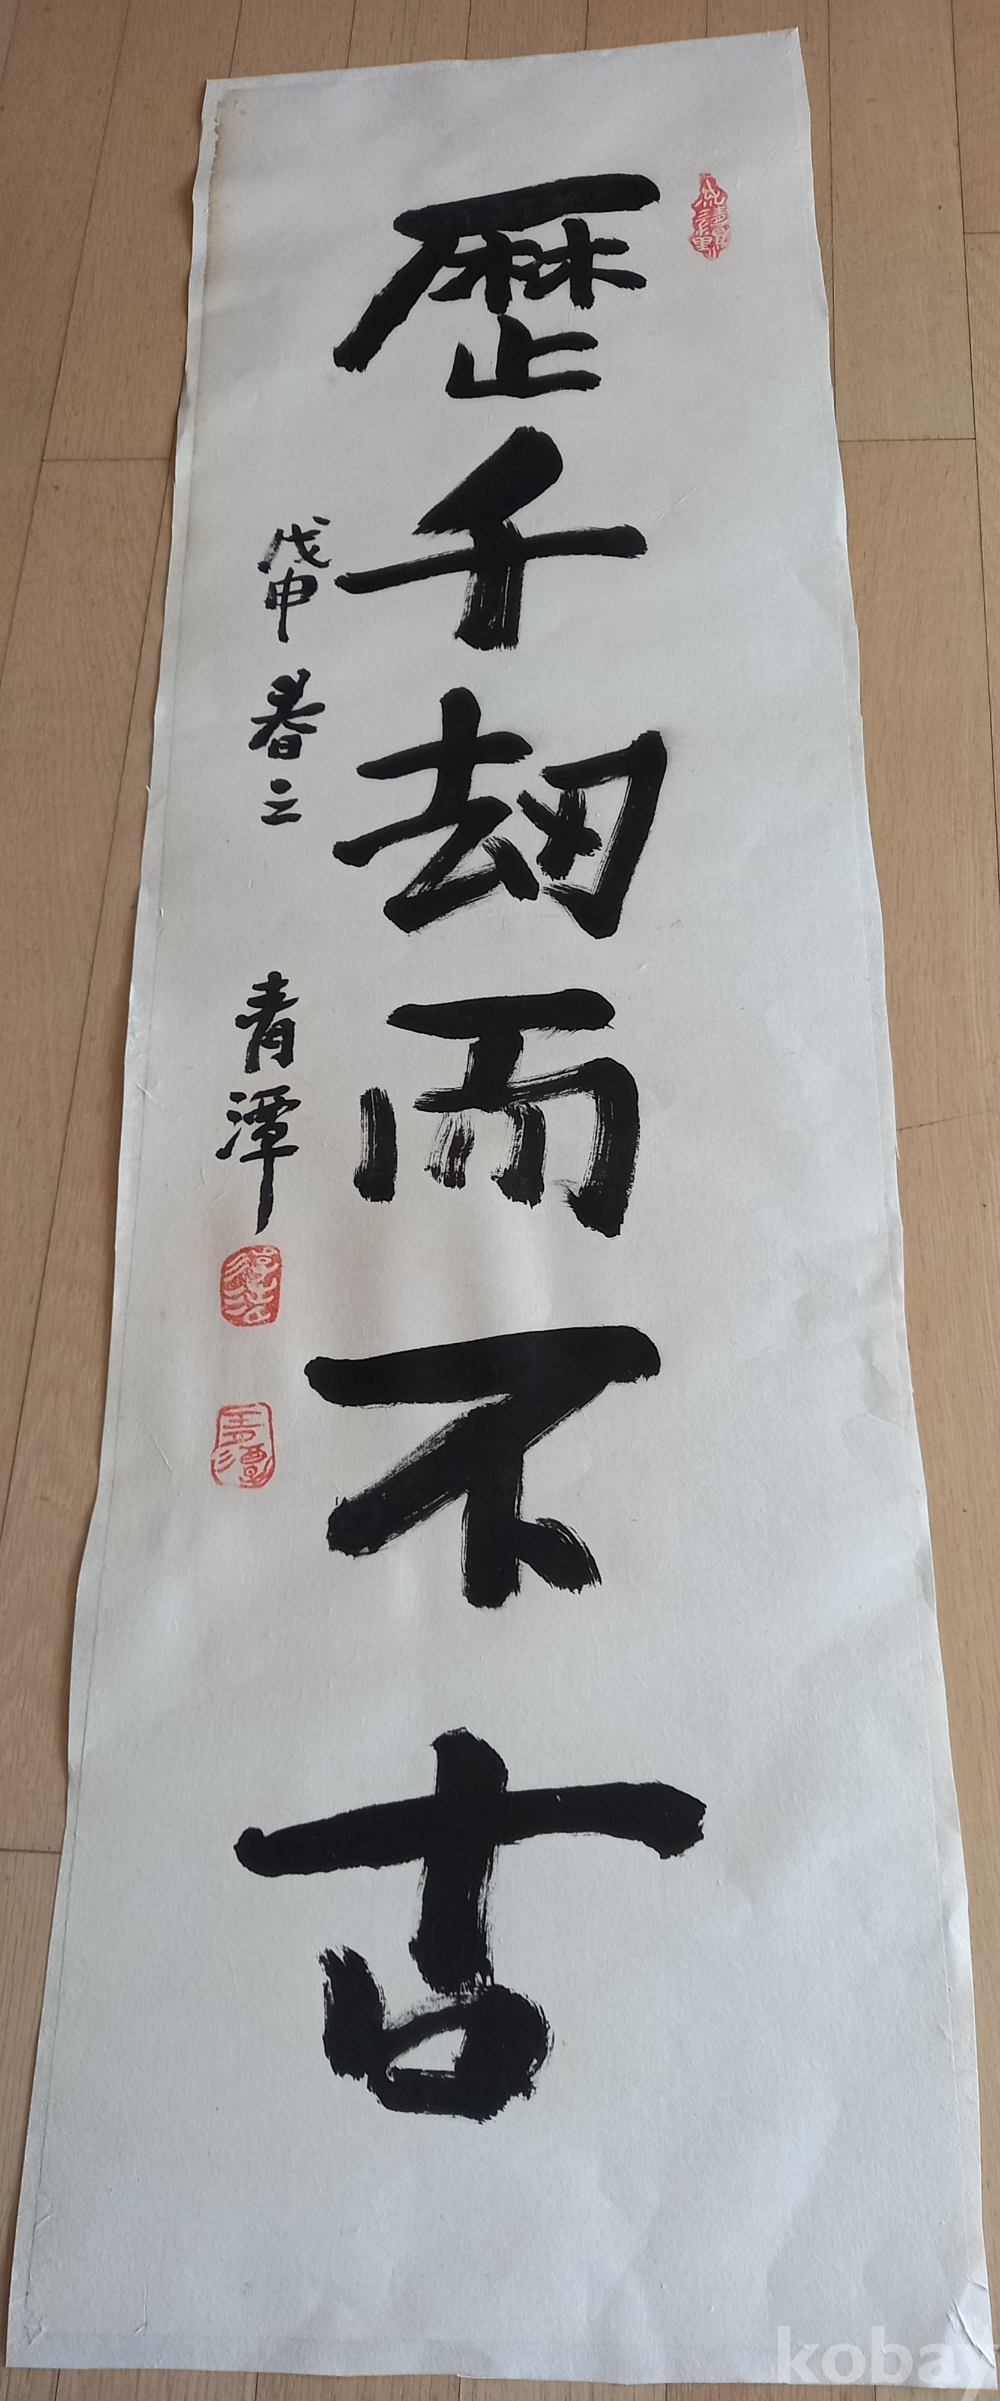 歷千劫而不古
戊申春之
青潭
淳浩
青潭
kobay